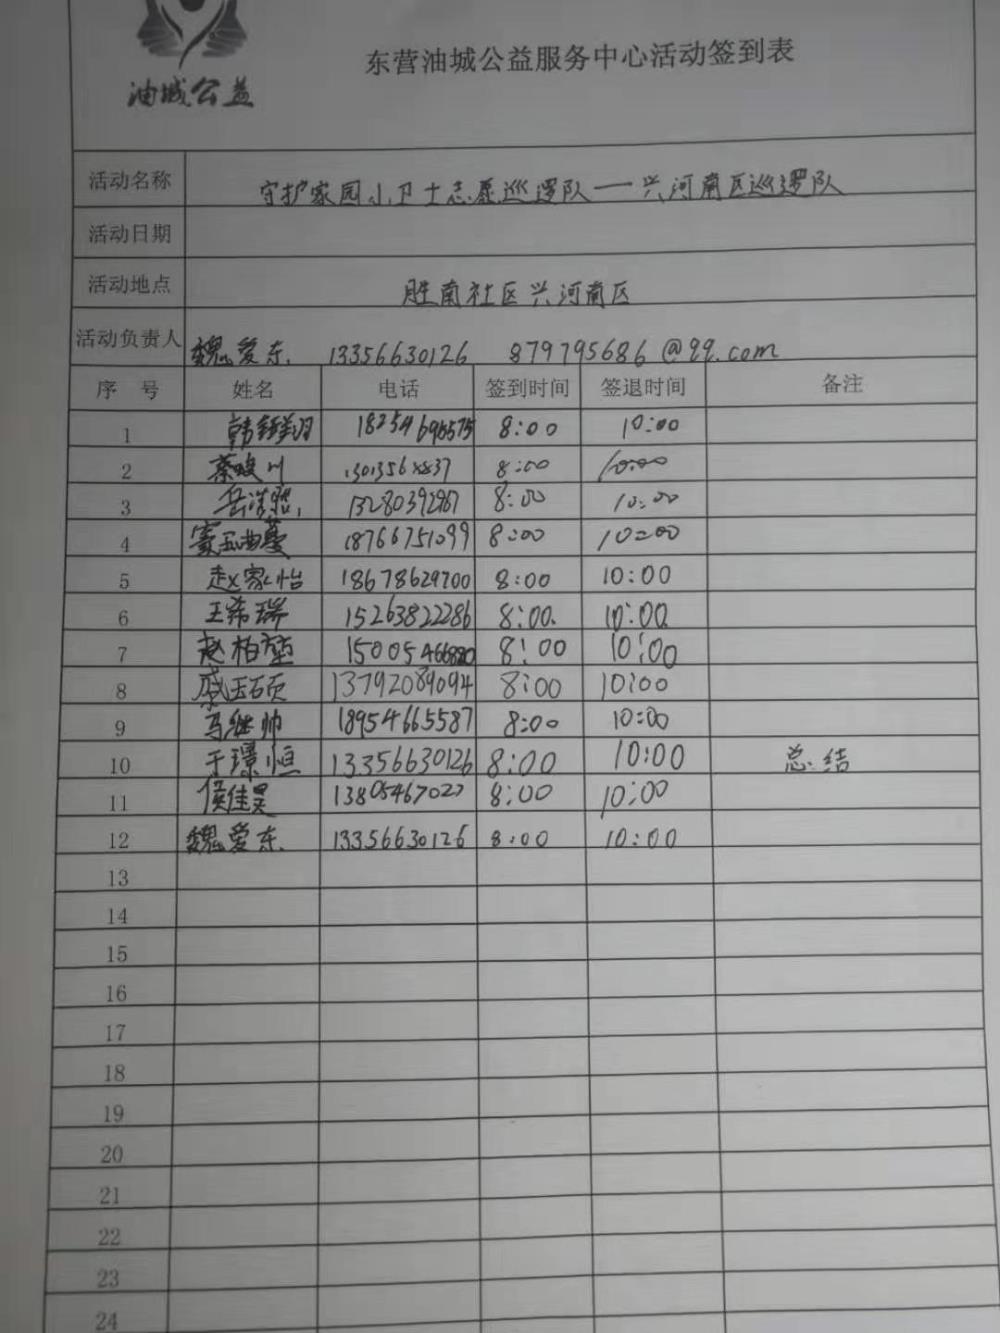 油城公益
东营油城公益服务中心活动签到表
活动名称 守护家园小卫士志愿巡逻队——兴河南区巡逻队
活动日期
活动地点 胜南社区兴河南区
活动负责人 魏爱东 13356630126 879795686@qq.com
序号 姓名 电话 签到时间 签退时间 备注
1 8:00 10:00
2 蔡峻川 8:00 10:00
3 13280392967 8:00 10:00
4 18766751099 8:00 10:00
5 赵家怡 18678629700 8:00 10:00
6 王希瑞 15263822286 8:00 10:00
7 赵柏堃 8:00 10:00
8 戚玉硕 13792089094 8:00 10:00
9 马继帅 18954665587 8:00 10:00
10 于璟恒 13356630126 8:00 10:00 总结
11 侯佳昊 8:00 10:00
12 魏爱东 13356630126 8:00 10:00
13
14
15
16
17
18
19
20
21
22
23
24